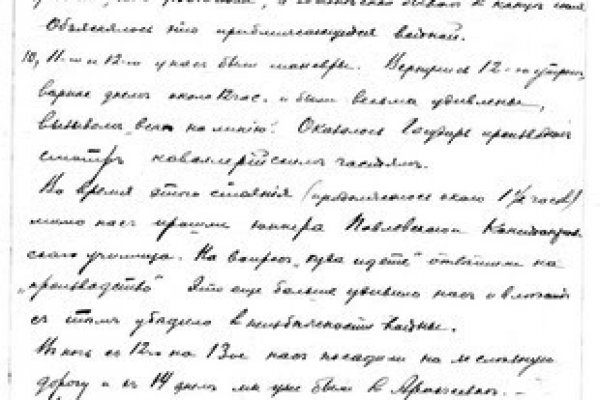 Объяснялось это приближающейся войной.
10, 11-го и 12-го у нас были маневры. Вернулись 12-го утром,
вернее днем около 12 час. и были весьма удивлены,
вызовом "всех на линию". Оказалось Государь производил
смотр кавалерийским частям.
Во время этого стояния (продолжалось около 1½ часов)
мимо нас прошли юнкера Павловского
училища. На вопрос "куда идете" ответили на
"производство". Это еще больше удивило нас и
с тем убедило в неизбежности войны.
В ночь с 12-го на 13-ое нас посадили на железную
дорогу и в 14 днем мы уже были в